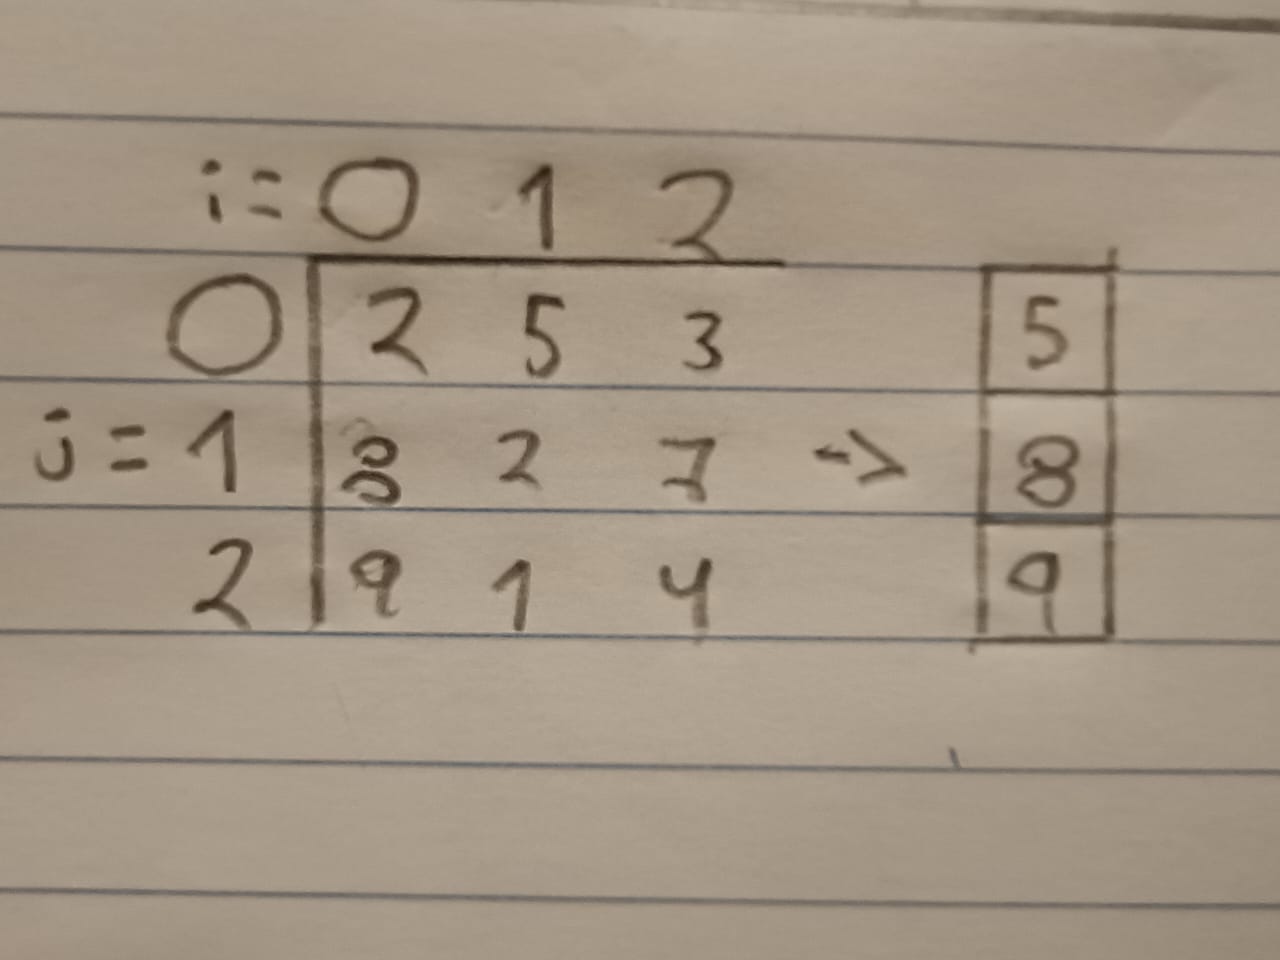 i= 0 1 2
0 2 5 3 5
j = 1 8 2 7 -> 8
2 9 1 4 9